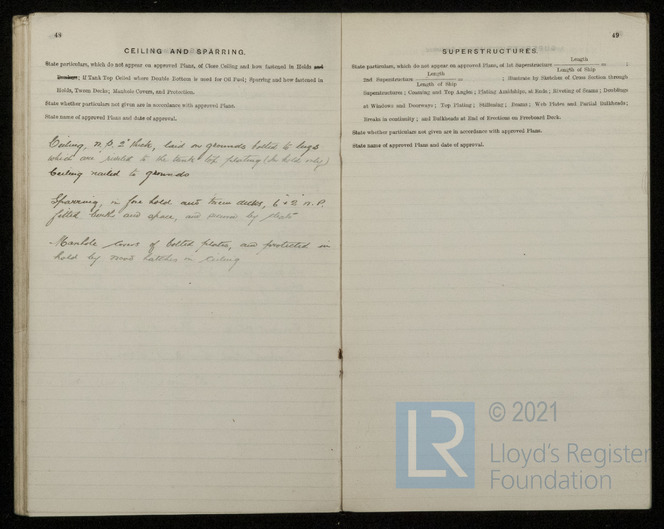 48
CEILING AND SPARRING.
State particulars, which do not appear on approved Plans, of Close Ceiling and how fastened in Holds and
Bunkers; if Tank Top Ceiled where Double Bottom is used for Oil Fuel; Sparring and how fastened in
Holds, Tween Decks; Manhole Covers, and Protection.
State whether particulars not given are in accordance with approved Plans.
State name of approved Plans and date of approval.
Ceiling, N.P. 2" thick, laid on grounds bolted to lugs
which are riveted to the tank top plating (In hold only)
Ceiling nailed to grounds
Sparring, in fore hold and tween decks, 6" x 2" N.P.
fitted and space, and secured by
Manhole covers of bolted plates, and protected in
hold by wood hatches in ceiling
49
SUPERSTRUCTURES.
State particulars, which do not appear on approved Plans, of 1st Superstructure Length
Length of Ship = ;
2nd Superstructure Length
Length of Ship = ; illustrate by Sketches of Cross Section through
Superstructures; Coaming and Top Angles; Plating Amidships, at Ends; Riveting of Seams; Doublings
at Windows and Doorways; Top Plating; Stiffening; Beams; Web Plates and Partial Bulkheads;
Breaks in continuity; and Bulkheads at End of Erections on Freeboard Deck.
State whether particulars not given are in accordance with approved Plans.
State name of approved Plans and date of approval.
LR
© 2021
Lloyd's Register
Foundation